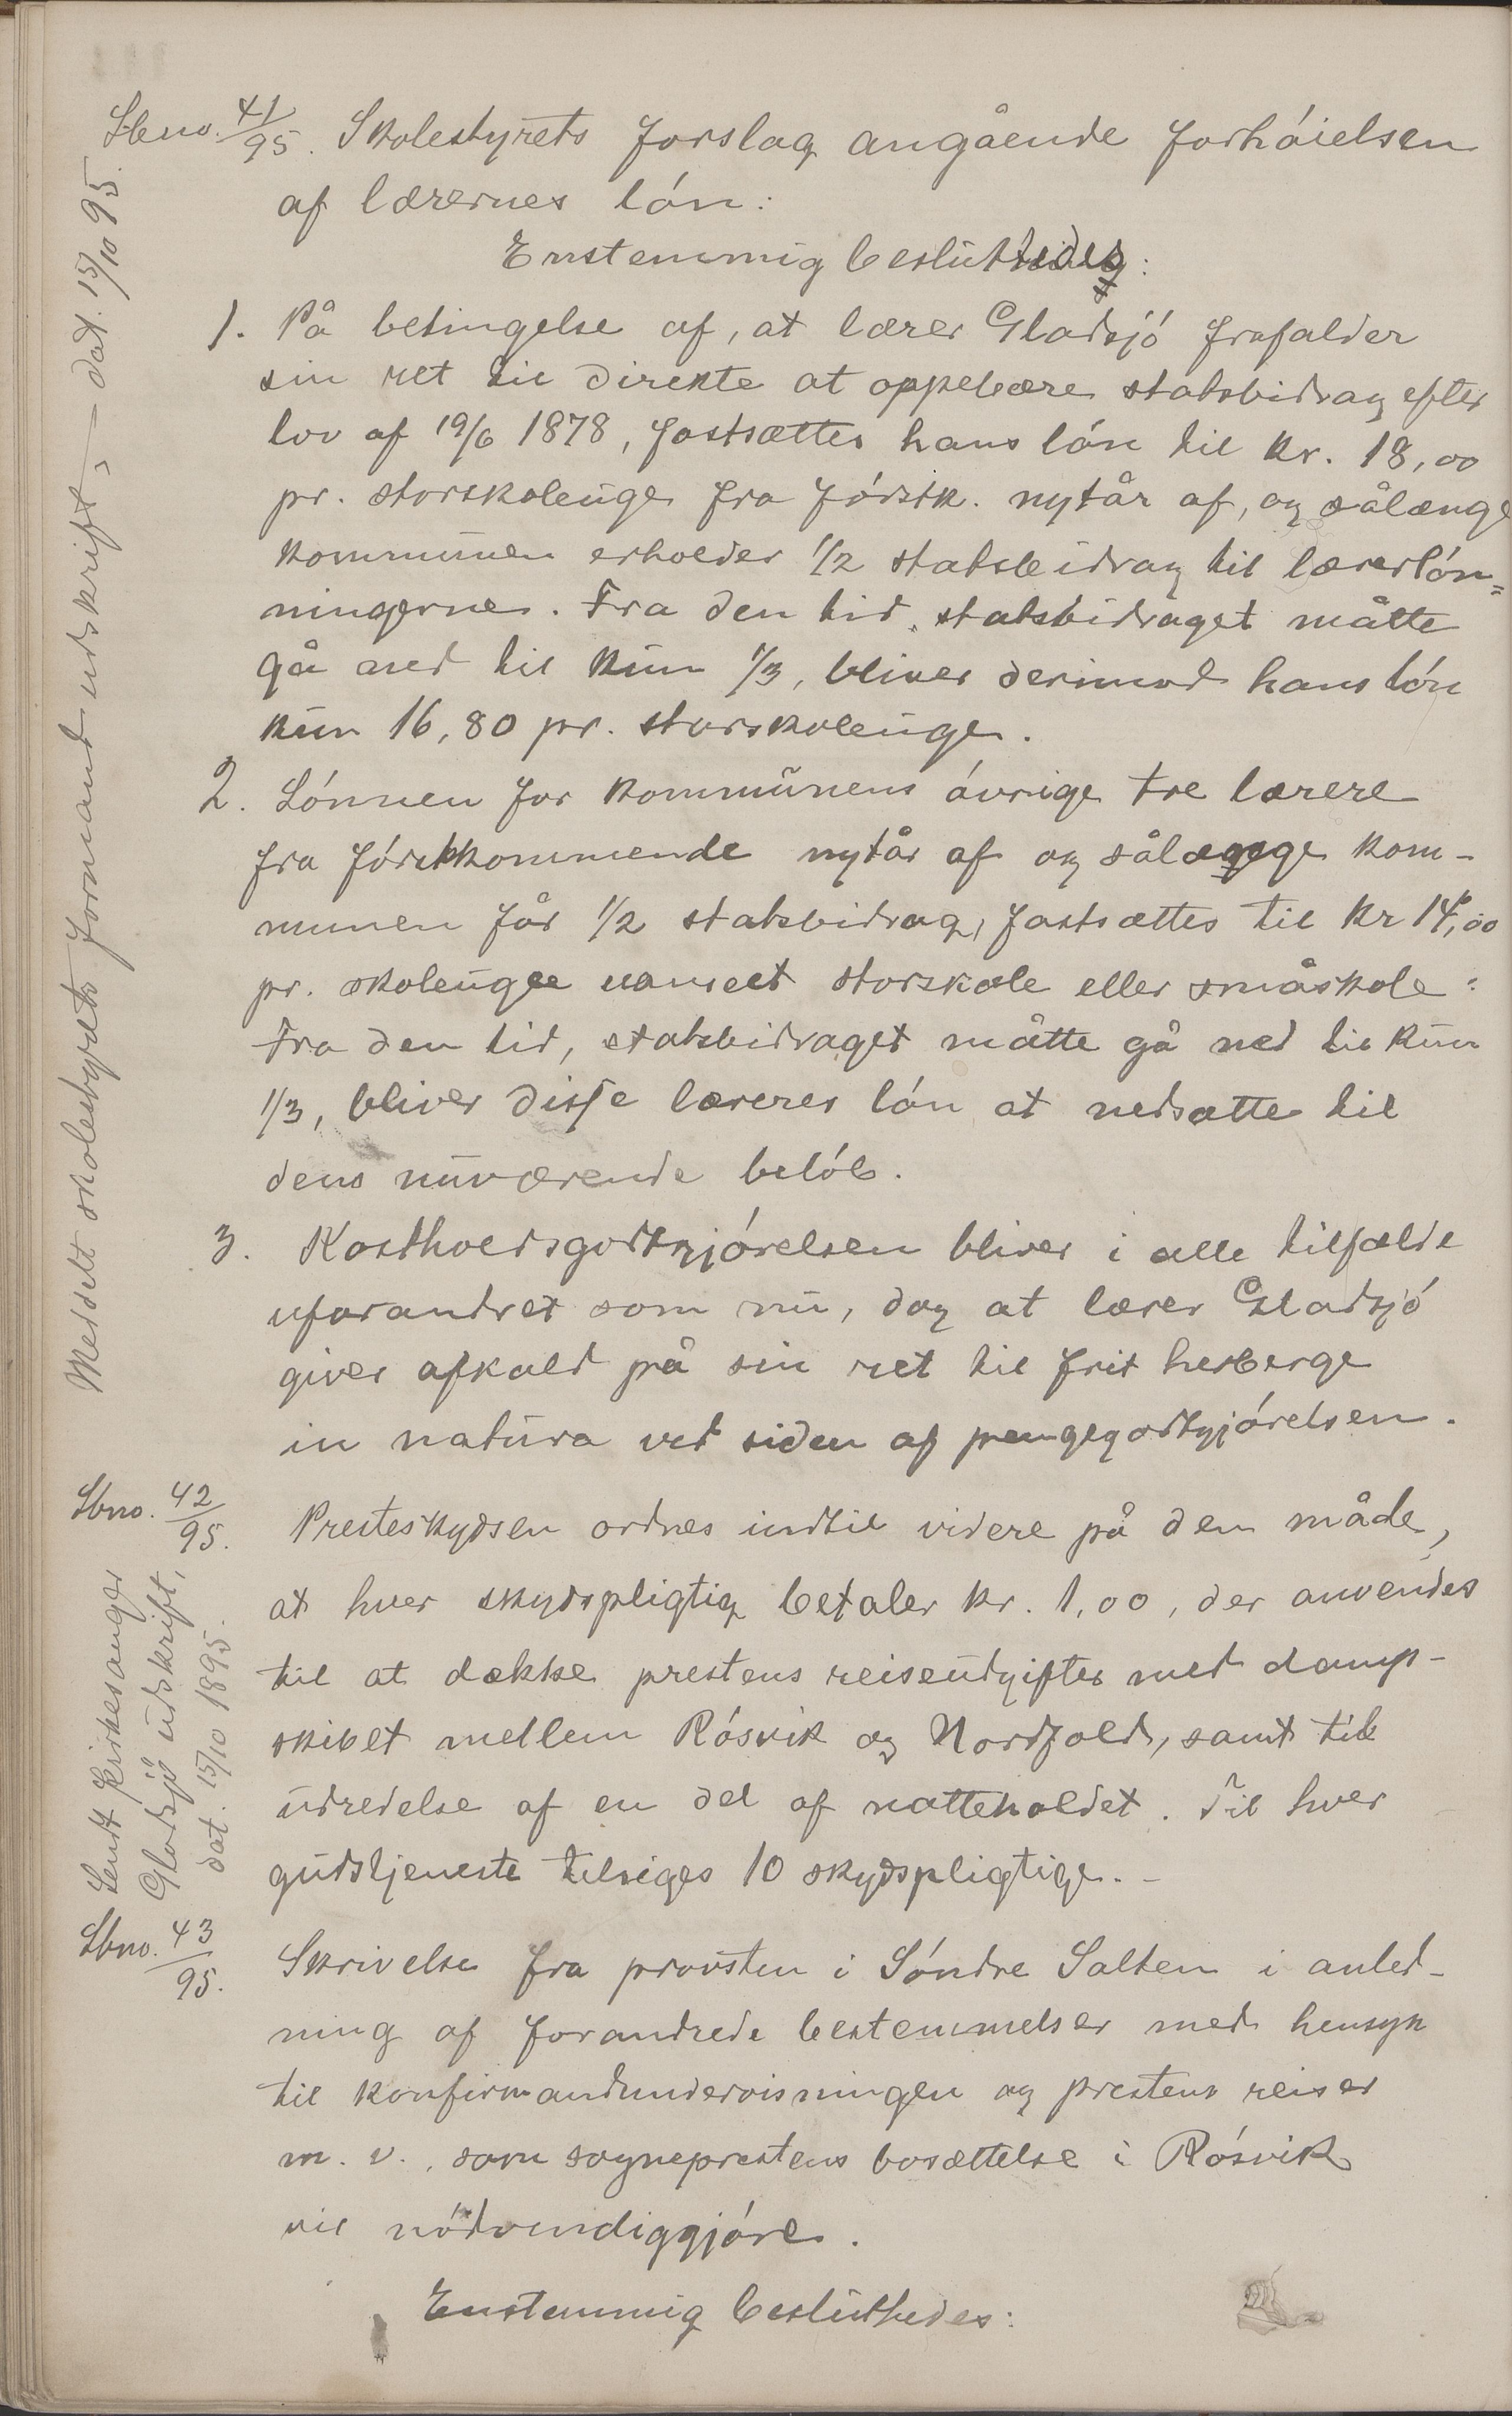 Sbno. 41/95. Skolestyrets forslag angående forhóielsen
af lærernes lón:
Enstemmig beslüttedes:
1. På betingelse af, at lærer Gladsjó frafalder
sin ret til direkte at oppebære statsbidrag efter
lov af 19/6 1878, fastsættes hans lón til kr. 18,00
pr. storskoleüge fra fórstk. nytår af, og sålænge
kommünen erholder 1/2 statsbidrag til lærerlón=
ningerne. Fra den tid, statsbidraget måtte
gå ned til kün 1/3, bliver derimod hans lón
kün 16,80 pr. storskoleüge.
2. Lónnen for kommünens óvrige tre lærere
fra fórstkommende nytår af og sålænge kom-
munen får 1/2 statsbidrag, fastsættes til kr 14,00
pr. skoleüge uanseet storskole eller småskole:
Fra den tid, statsbidraget måtte gå ned til kün
1/3, bliver disse læreres lón at nedsætte til
dens nüværende belób.
3. Kostholdsgodtgjórelsen bliver i alle tilfælde
uforandret som nü, dog at lærer Gladsjó
giver afkald på sin ret til frit herberge
in natüra ved siden af pengegodtgjórelsen.
Meddelt skolestyrets formand udskrift, dat. 15/10 95.
Sbno. 42/95. Presteskydsen ordnes indtil videre på den måde,
at hver skydspligtig betaler kr. 1,00, der anvendes
til at dække prestens reiseüdgifter med damp-
skibet mellem Rósvik og Nordfold, samt til
üdredelse af en del af natteholdet. Til hver
güdstjeneste tilsiges 10 skydspligtige.-
Sendt kirkesanger
Gladsjö üdskrift,
dat. 15/10 1895.
Sbno. 43/95. Skrivelse fra provsten i Sóndre Salten i anled-
ning af forandrede bestemmelser med hensyn
til konfirmandundervisningen og prestens reiser
m. v., som sogneprestens bosættelse i Rósvik
vil nödvendiggjóre.
Enstemmig beslüttedes: